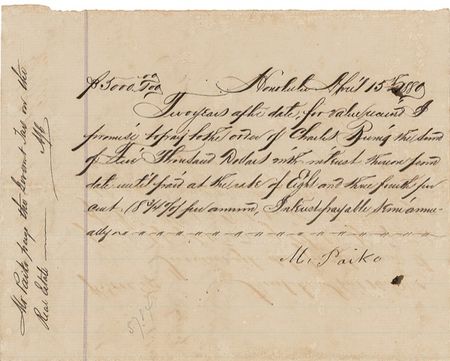 $5000 00/100 Honolulu April 15th 1880
Two years after date, for value received I
promise to pay to the order of Charles the sum
of Five Thousand Dollars with interest thereon from
date until paid at the rate of Eight and three fourths per
cent (8 3/4 %) per annum, Interest payable semi annu-
ally
M. Paiko
Mr Paiko pays the Govmt Tax on the
Real Estate